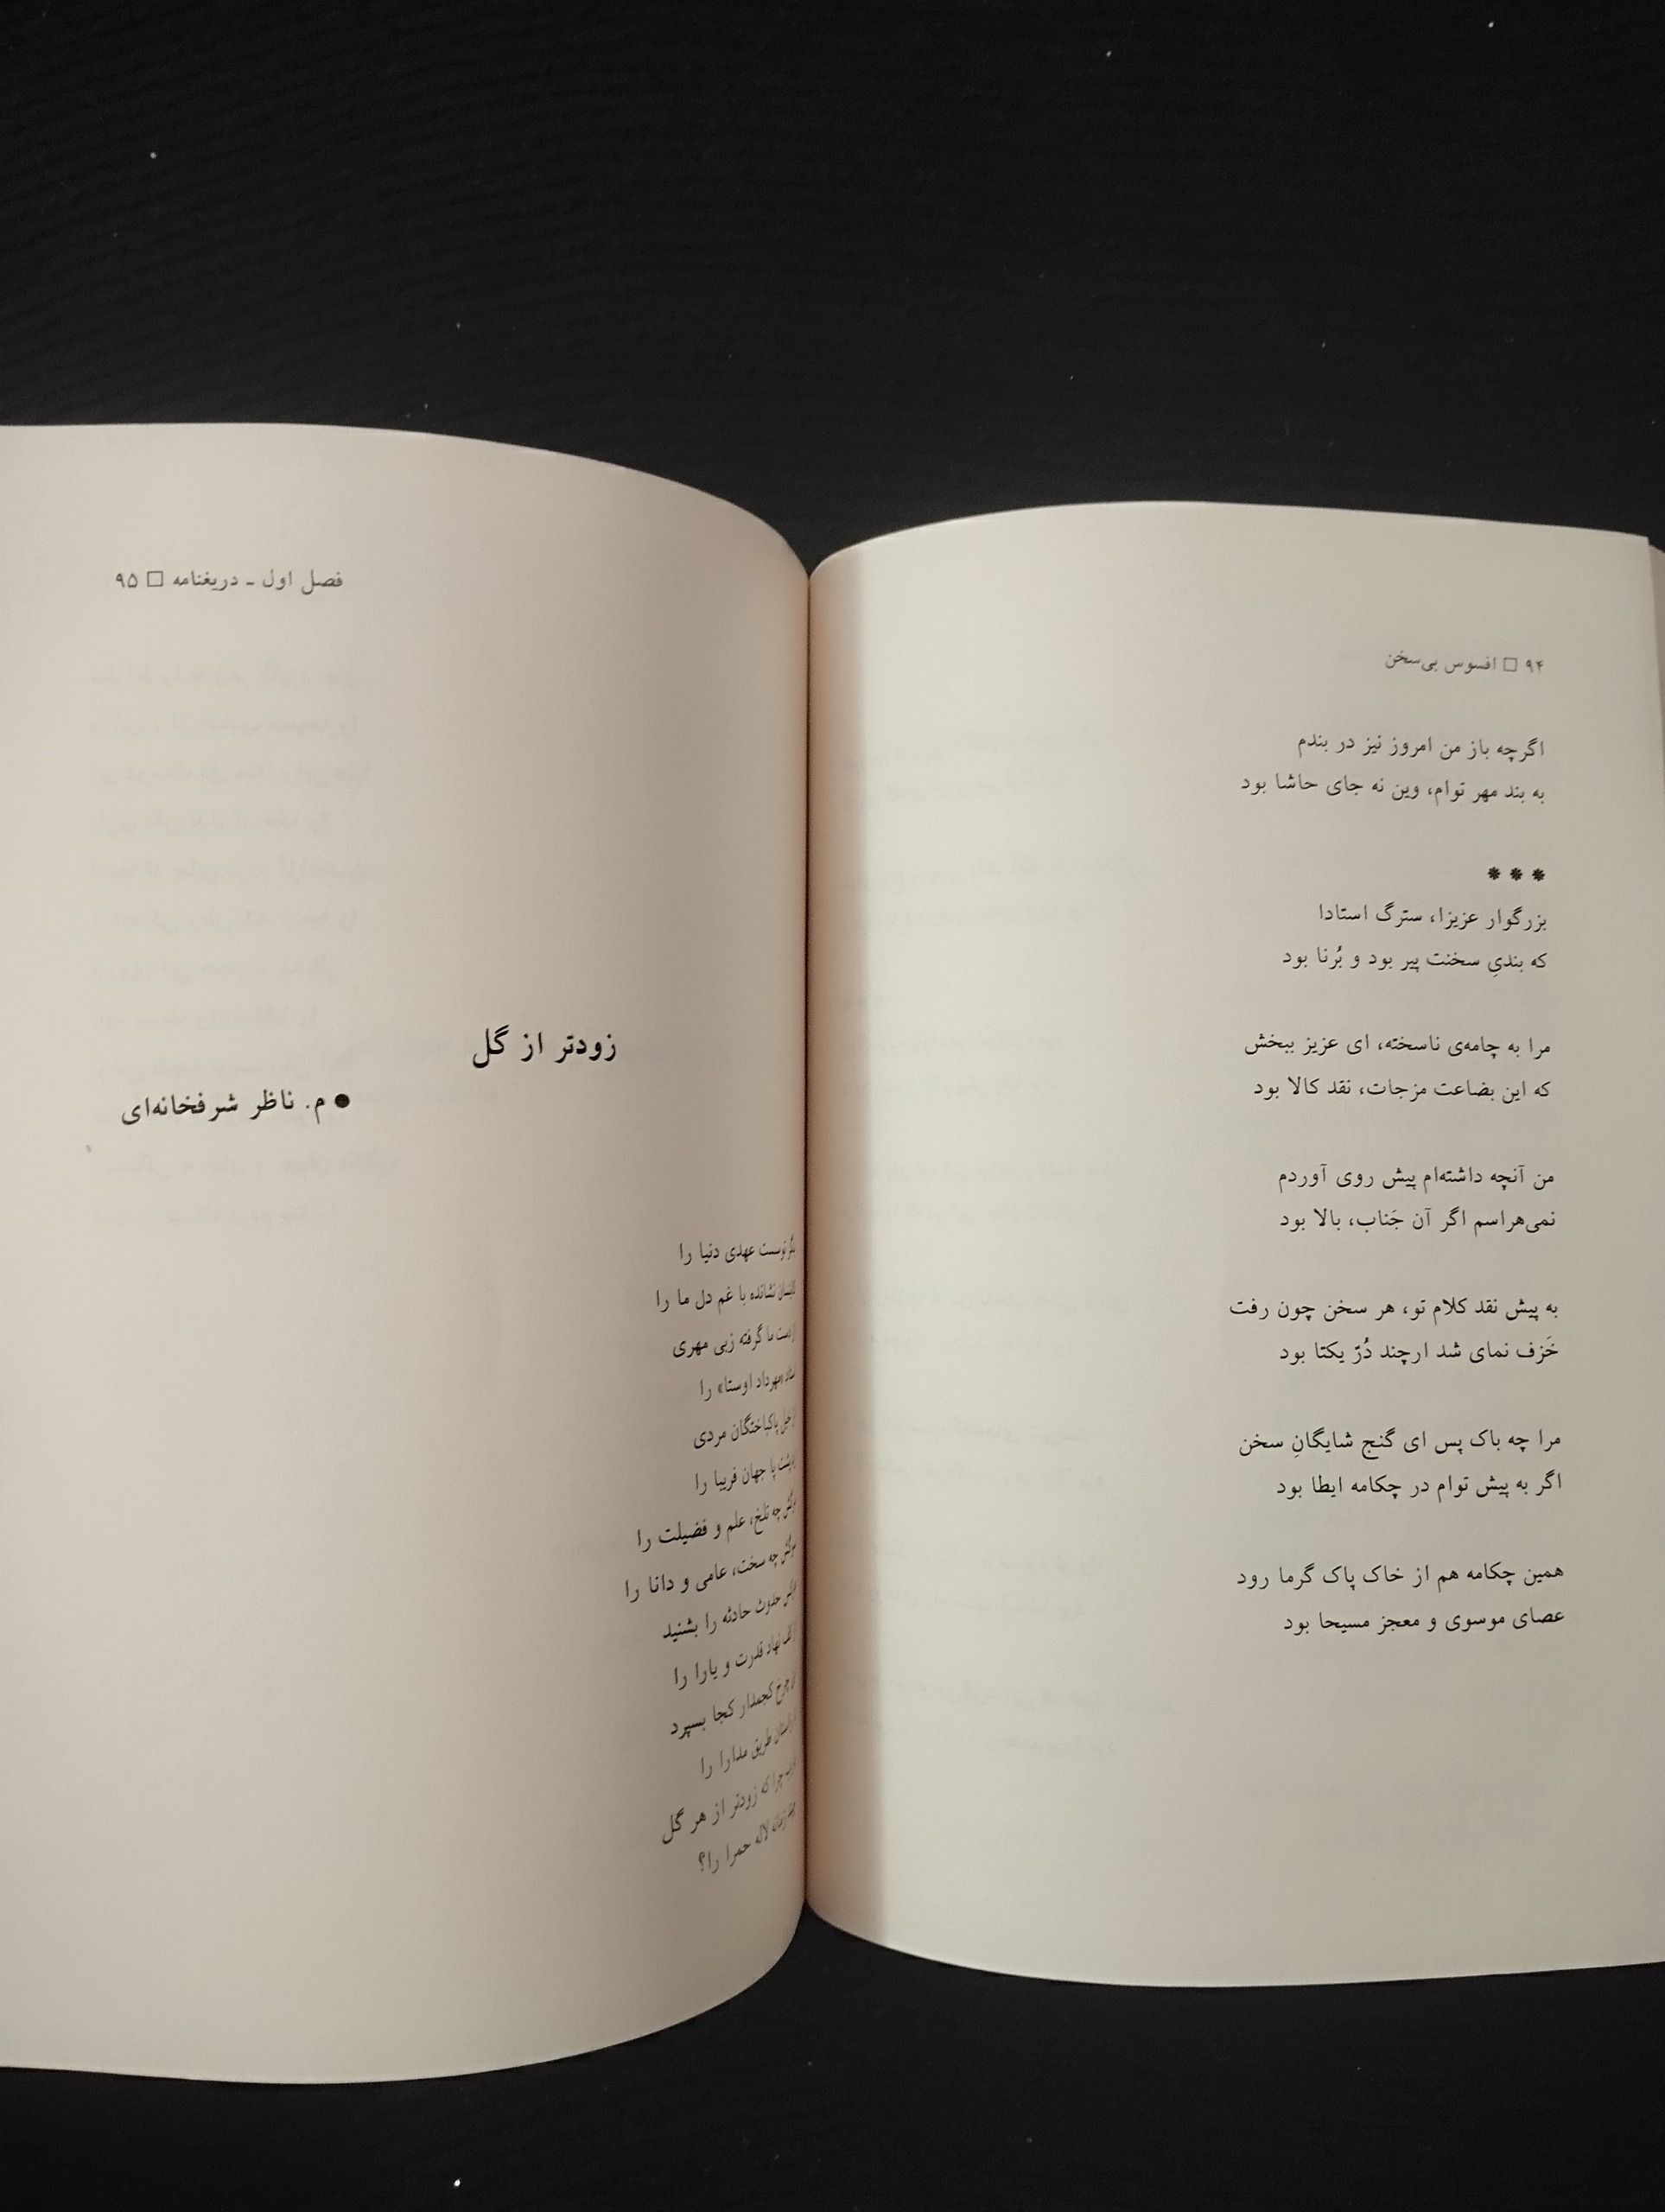 ۹۴ □ افسوس بی‌سخن
اگرچه باز من امروز نیز در بندم
به بند مهر توام، وین نه جای حاشا بود
* * *
بزرگوار عزیزا، سترگ استادا
که بندیِ سخنت پیر بود و بُرنا بود
مرا به چامه‌ی ناسخته، ای عزیز ببخش
که این بضاعت مزجات، نقد کالا بود
من آنچه داشته‌ام پیش روی آوردم
نمی‌هراسم اگر آن جَناب، بالا بود
به پیش نقد کلام تو، هر سخن چون رفت
خَزف نمای شد ارچند دُرّ یکتا بود
مرا چه باک پس ای گنج شایگانِ سخن
اگر به پیش توام در چکامه ایطا بود
همین چکامه هم از خاک پاک گرما رود
عصای موسوی و معجز مسیحا بود
فصل اول ـ دریغنامه □ ۹۵
زودتر از گل
● م. ناظر شرفخانه‌ای
عهدی دنیا را
نشانده با غم دل ما را
ما گرفته زبی مهری
«مهرداد اوستا» را
پاکباختگان مردی
پا جهان فریبا را
چه تلخ، علم و فضیلت را
چه سخت، عامی و دانا را
حدوث حادثه را بشنید
نهاد قدرت و یارا را
چرخ کجمدار کجا بسپرد
طریق مدارا را
چرا که زودتر از هر گل
زمانه لاله حمرا را؟